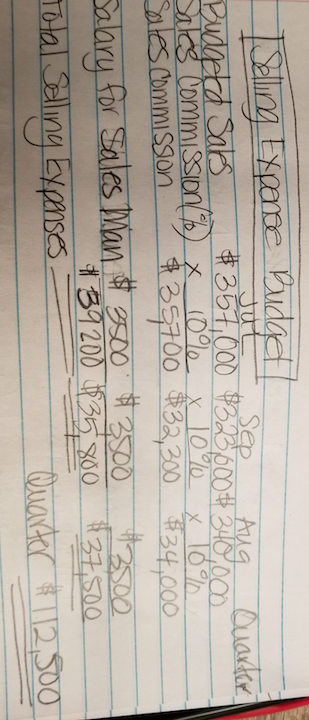 Selling Expense Budget
Jul Sep Aug Quarter
Budgeted Sales $357,000 $323,000 $340,000
Sales Commission(%) x 10% x 10% x 10%
Sales Commission $35700 $32,300 $34,000
Salary for Sales Man $3500 $3500 $3500
Total Selling Expenses $39200 $35,800 $37,500
Quarter $112,500